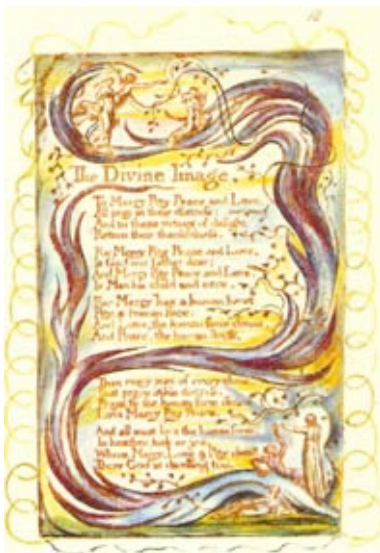 The Divine Image.
To Mercy Pity Peace and Love,
All pray in their distress:
And to these virtues of delight
Return their thankfulness.
For Mercy Pity Peace and Love,
Is God our father dear:
And Mercy Pity Peace and Love,
Is Man his child and care.
For Mercy has a human heart
Pity, a human face:
And Love, the human form divine,
And Peace, the human dress.
Then every man of every clime,
That prays in his distress,
Prays to the human form divine
Love Mercy Pity Peace.
And all must love the human form,
In heathen, turk or jew.
Where Mercy, Love & Pity dwell,
There God is dwelling too